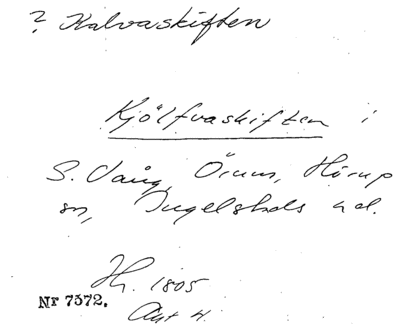 ? Kalvaskiften
Kjölfvaskiften i
S. Vång, Örum, Hörup
sn, Ingelstads hd.
Jb. 1805
Akt 4.
Nr 7372.